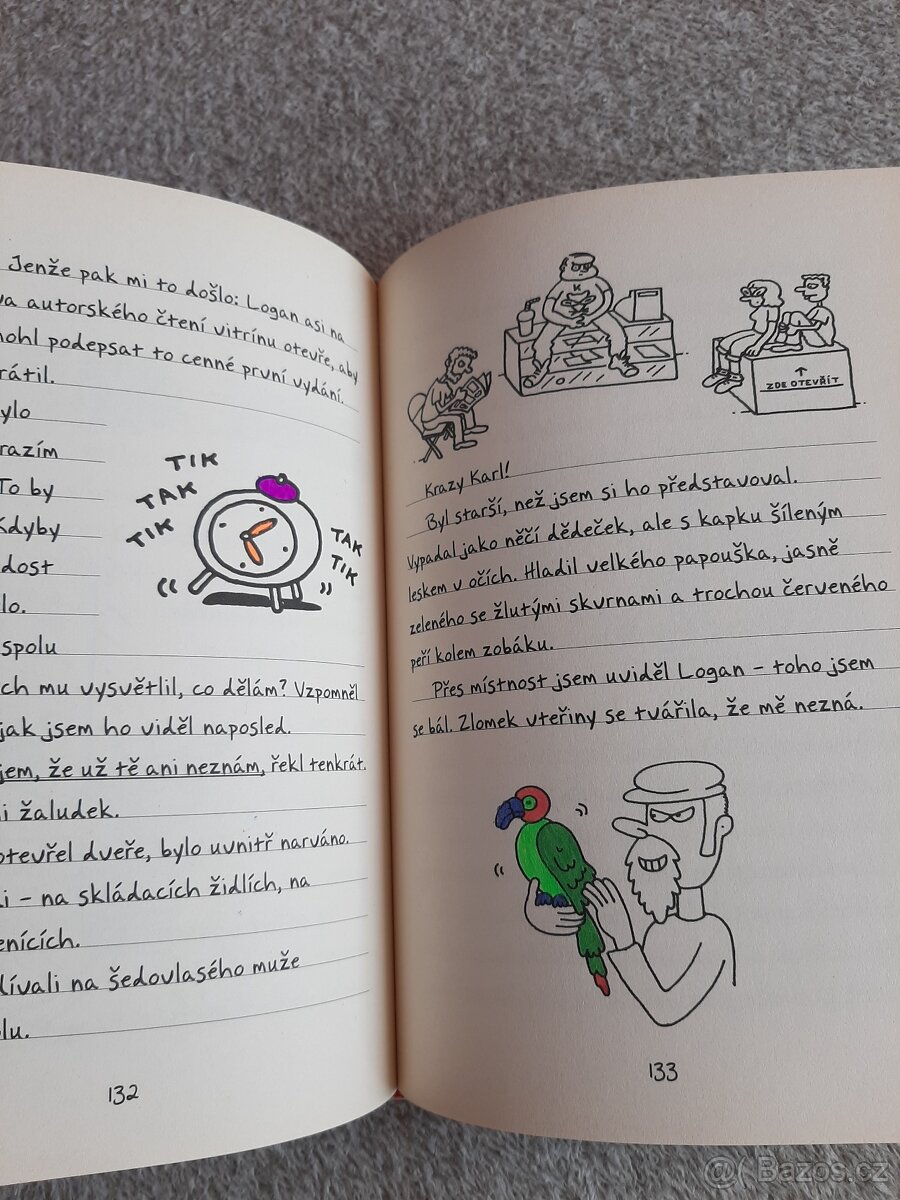 Jenže pak mi to došlo: Logan asi na
autorského čtení vitrínu otevře, aby
podepsat to cenné první vydání.
TIK
TAK
TIK
TAK
TIK
To by
dost
spolu
mu vysvětlil, co dělám? Vzpomněl
jak jsem ho viděl naposled.
že už tě ani neznám, řekl tenkrát.
žaludek.
dveře, bylo uvnitř narváno.
– na skládacích židlích, na
na šedovlasého muže
132
ZDE OTEVŘÍT
Krazy Karl!
Byl starší, než jsem si ho představoval.
Vypadal jako něčí dědeček, ale s kapku šíleným
leskem v očích. Hladil velkého papouška, jasně
zeleného se žlutými skvrnami a trochou červeného
peří kolem zobáku.
Přes místnost jsem uviděl Logan – toho jsem
se bál. Zlomek vteřiny se tvářila, že mě nezná.
133
@( Bazos.cz